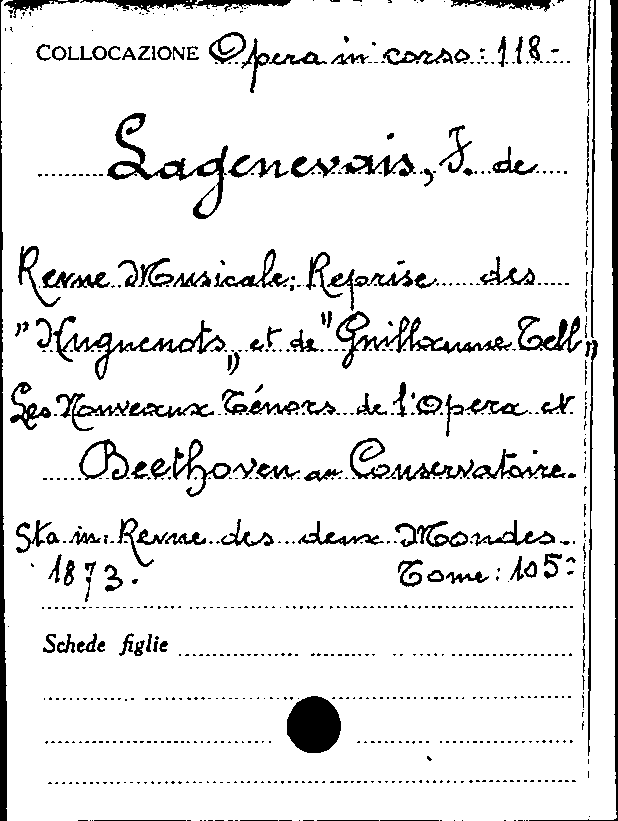 COLLOCAZIONE Opera in corso: 118-
Lagenevais, F. de
Revue Musicale; Reprise des
"Huguenots" et de "Guillaume Tell"
Les Nouveaux Ténors de l'Opera et
Beethoven au Conservatoire.
Sta in: Revue des deux Mondes.
1873. Tome: 105º
Schede figlie